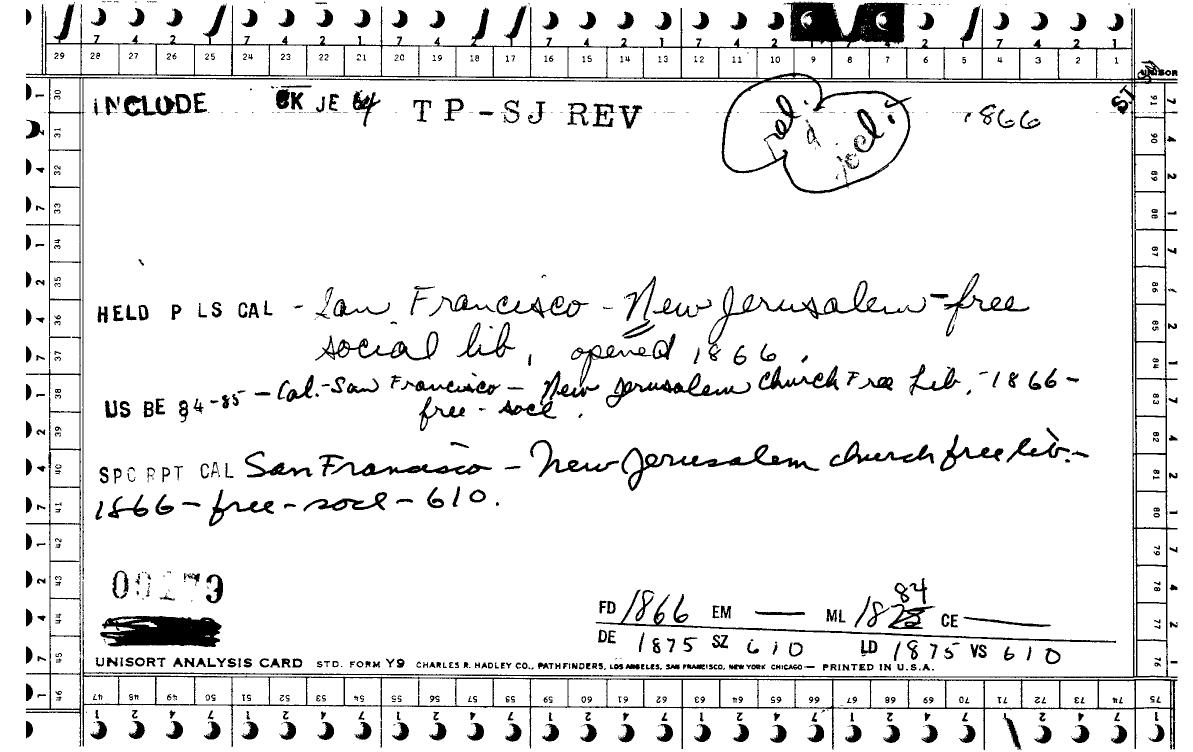 7 4 2 1 7 4 2 1 7 4 2 1 7 4 2 1 7 4 2 1
29 28 27 26 25 24 23 22 21 20 19 18 17 16 15 14 13 12 11 10 9 8 7 6 5 4 3 2 1
INCLUDE CK JE 64 TP-SJ REV rel. & socl. 1866
HELD P LS CAL - San Francisco - New Jerusalem - free
social lib, opened 1866.
US BE 84-85 - Cal.-San Francisco - New Jerusalem Church Free Lib, -1866-
free - socl.
SPC RPT CAL San Francisco - New Jerusalem church free lib.-
1866 - free - socl - 610.
84
FD 1866 EM — ML 18 CE —
DE 1875 SZ 610 LD 1875 VS 610
UNISORT ANALYSIS CARD STD. FORM Y9 CHARLES R. HADLEY CO., PATHFINDERS, LOS ANGELES, SAN FRANCISCO, NEW YORK CHICAGO — PRINTED IN U.S.A.
46 47 48 49 50 51 52 53 54 55 56 57 58 59 60 61 62 63 64 65 66 67 68 69 70 71 72 73 74 75